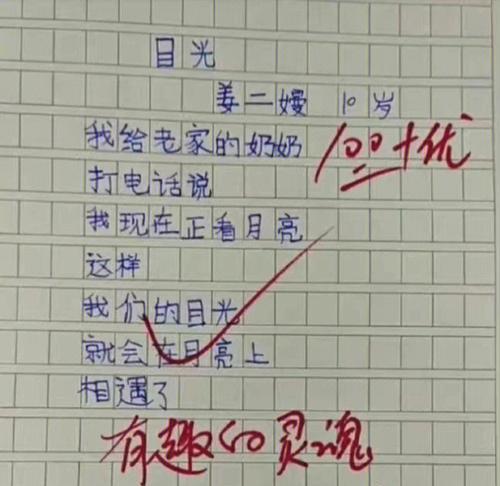 目光
姜二嫚 10岁
100+优
我给老家的奶奶
打电话说
我现在正看月亮
这样
我们的目光
就会在月亮上
相遇了
有趣的灵魂